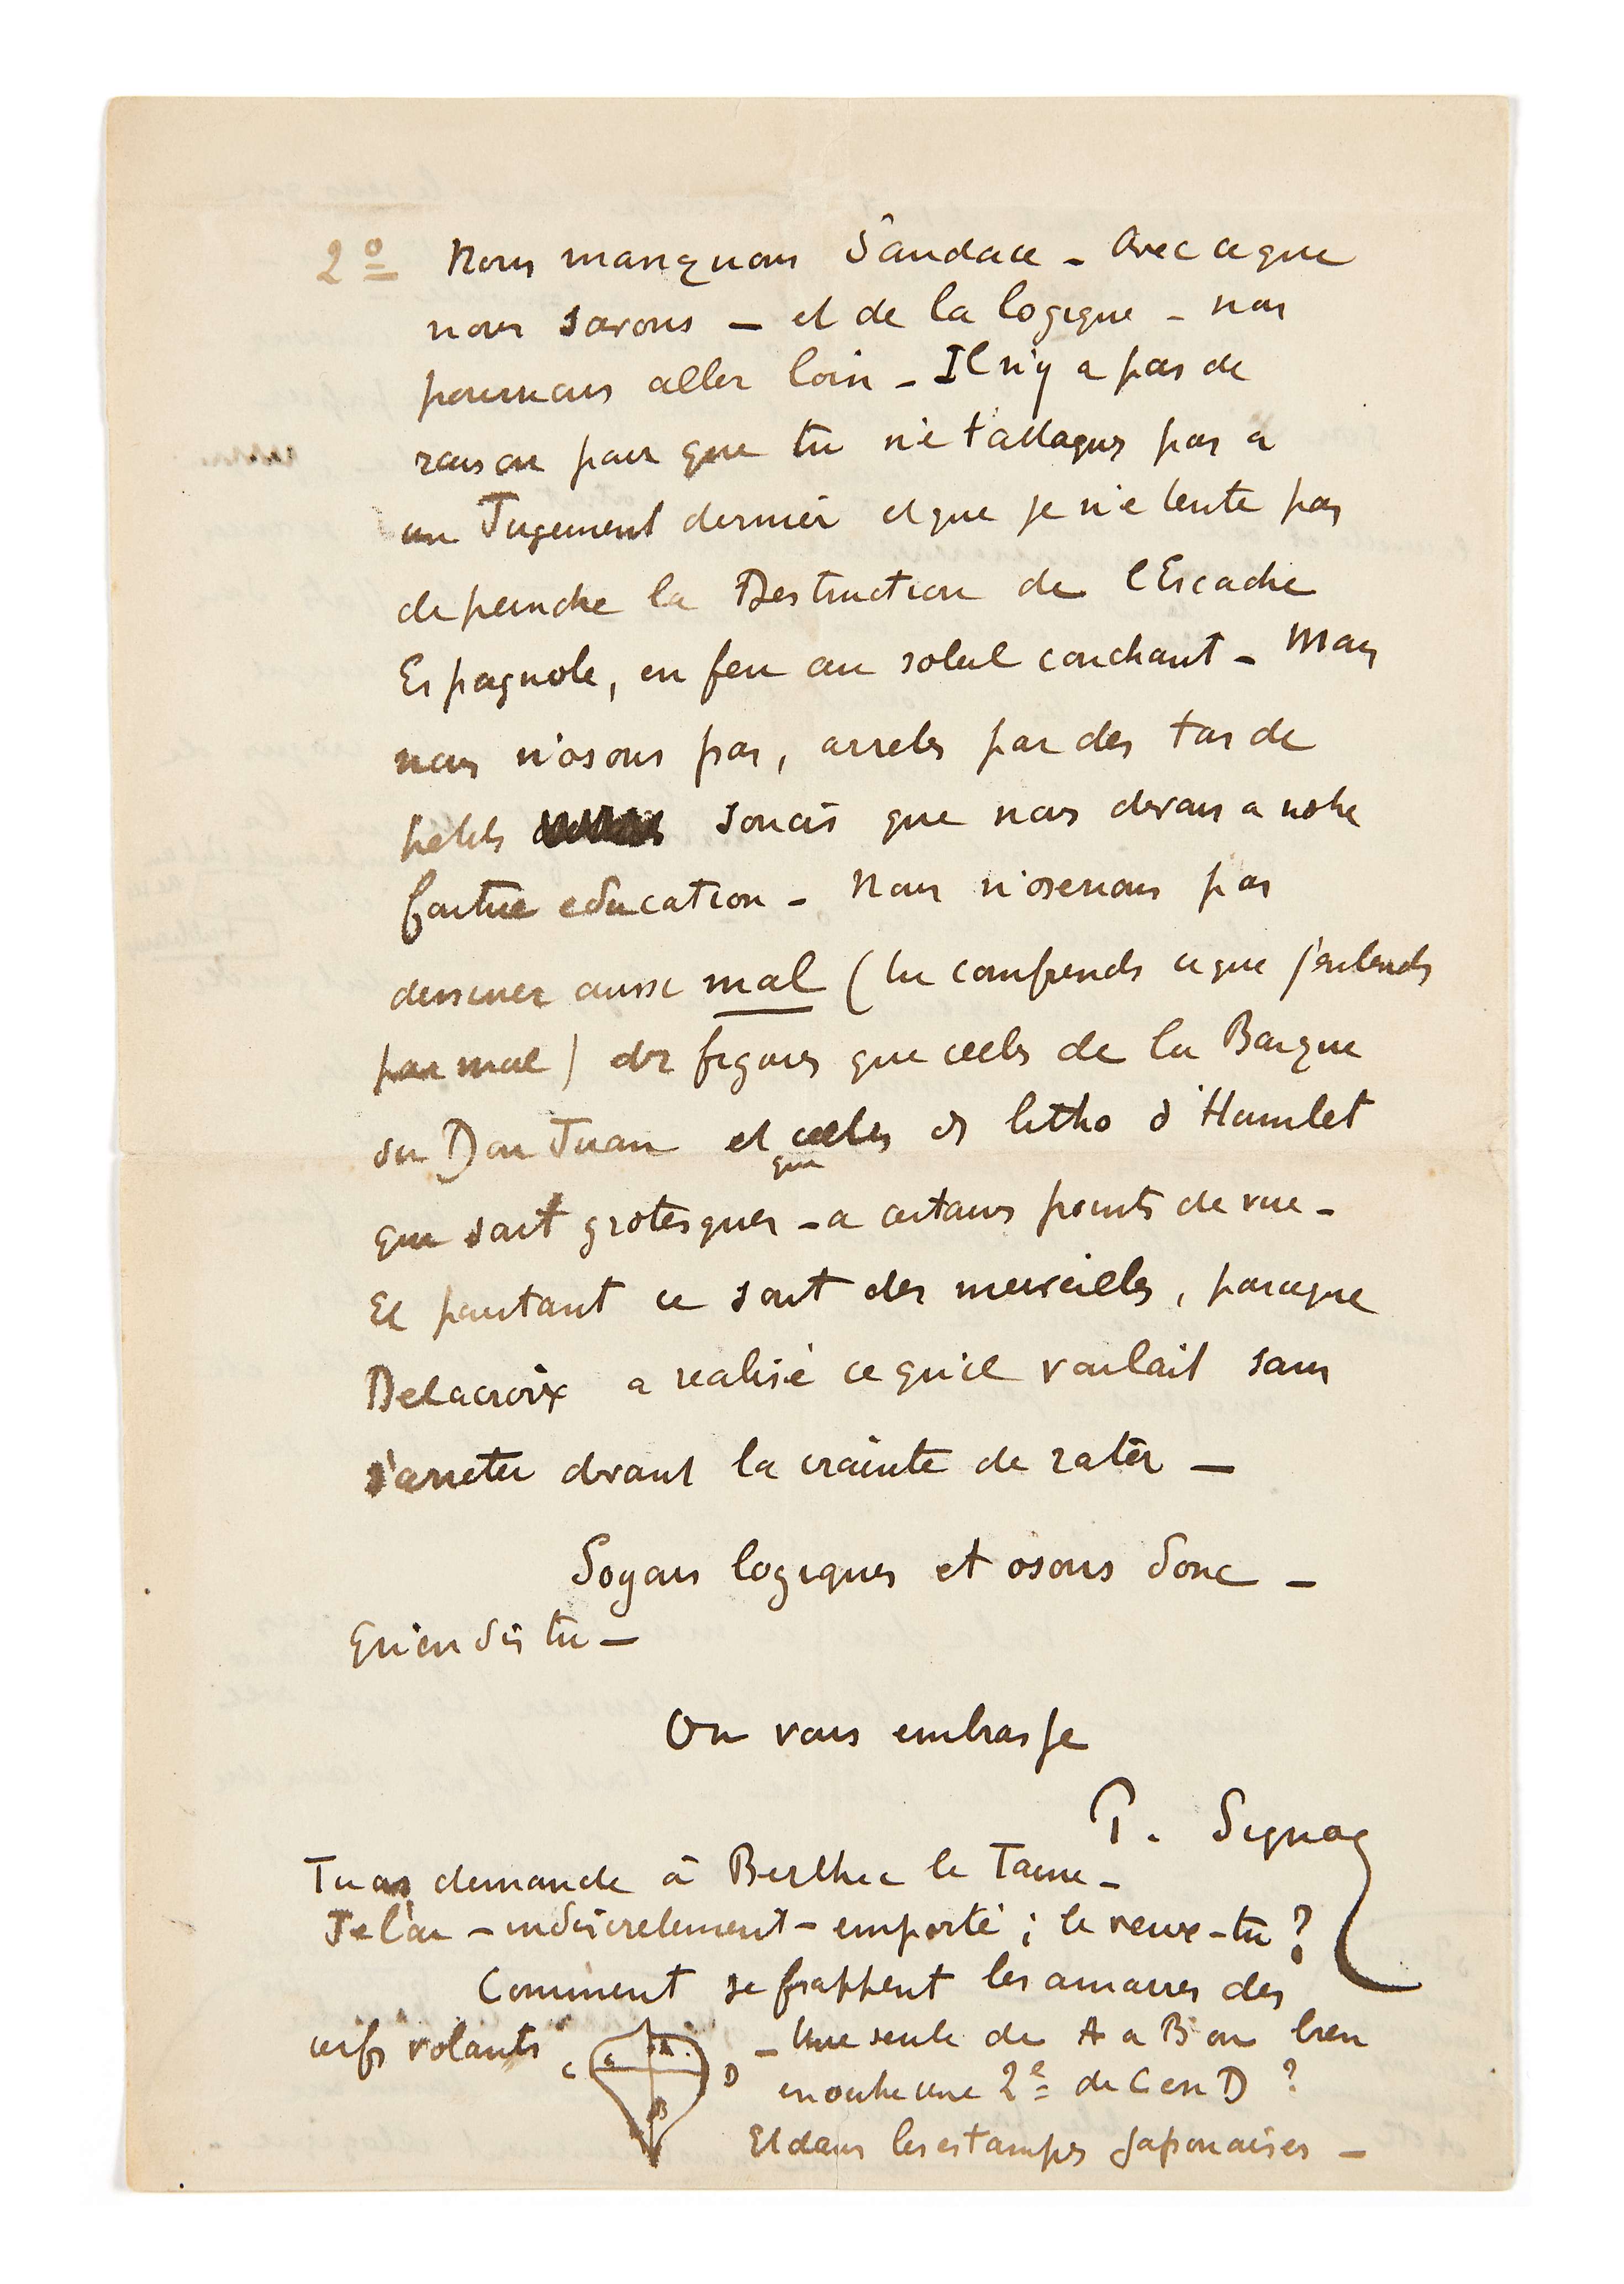 2º Nous manquons d'audace - Avec ce que
nous savons — et de la logique - nous
pourrions aller loin - Il n'y a pas de
raison pour que tu ne t'attaques pas a
un Jugement dernier et que je ne tente pas
de peindre la Destruction de l'Escadre
Espagnole, en feu au soleil couchant - Mais
nous n'osons pas, arretés par des tas de
petits soucis que nous devons a notre
foutue education - Nous n'oserions pas
dessiner aussi mal (tu comprends ce que j'entends
par mal) des figures que celles de la Barque
du Don Juan et que celles des litho d'Hamlet
qui sont grotesques - a certains points de vue -
Et pourtant ce sont des merveilles, parce que
Delacroix a realisé ce qu'il voulait sans
s'arreter devant la crainte de rater —
Soyons logiques et osons donc —
Qu'en dis tu —
On vous embrasse
P. Signac
Tu as demande à Berthe le Taine -
Je l'ai - indiscretement - emporté ; le veux-tu ?
Comment se frappent les amarres des
cerfs volants
C A D B
- Une seule de A a B ou bien
en outre une 2e de C en D ?
Et dans les estampes japonaises —